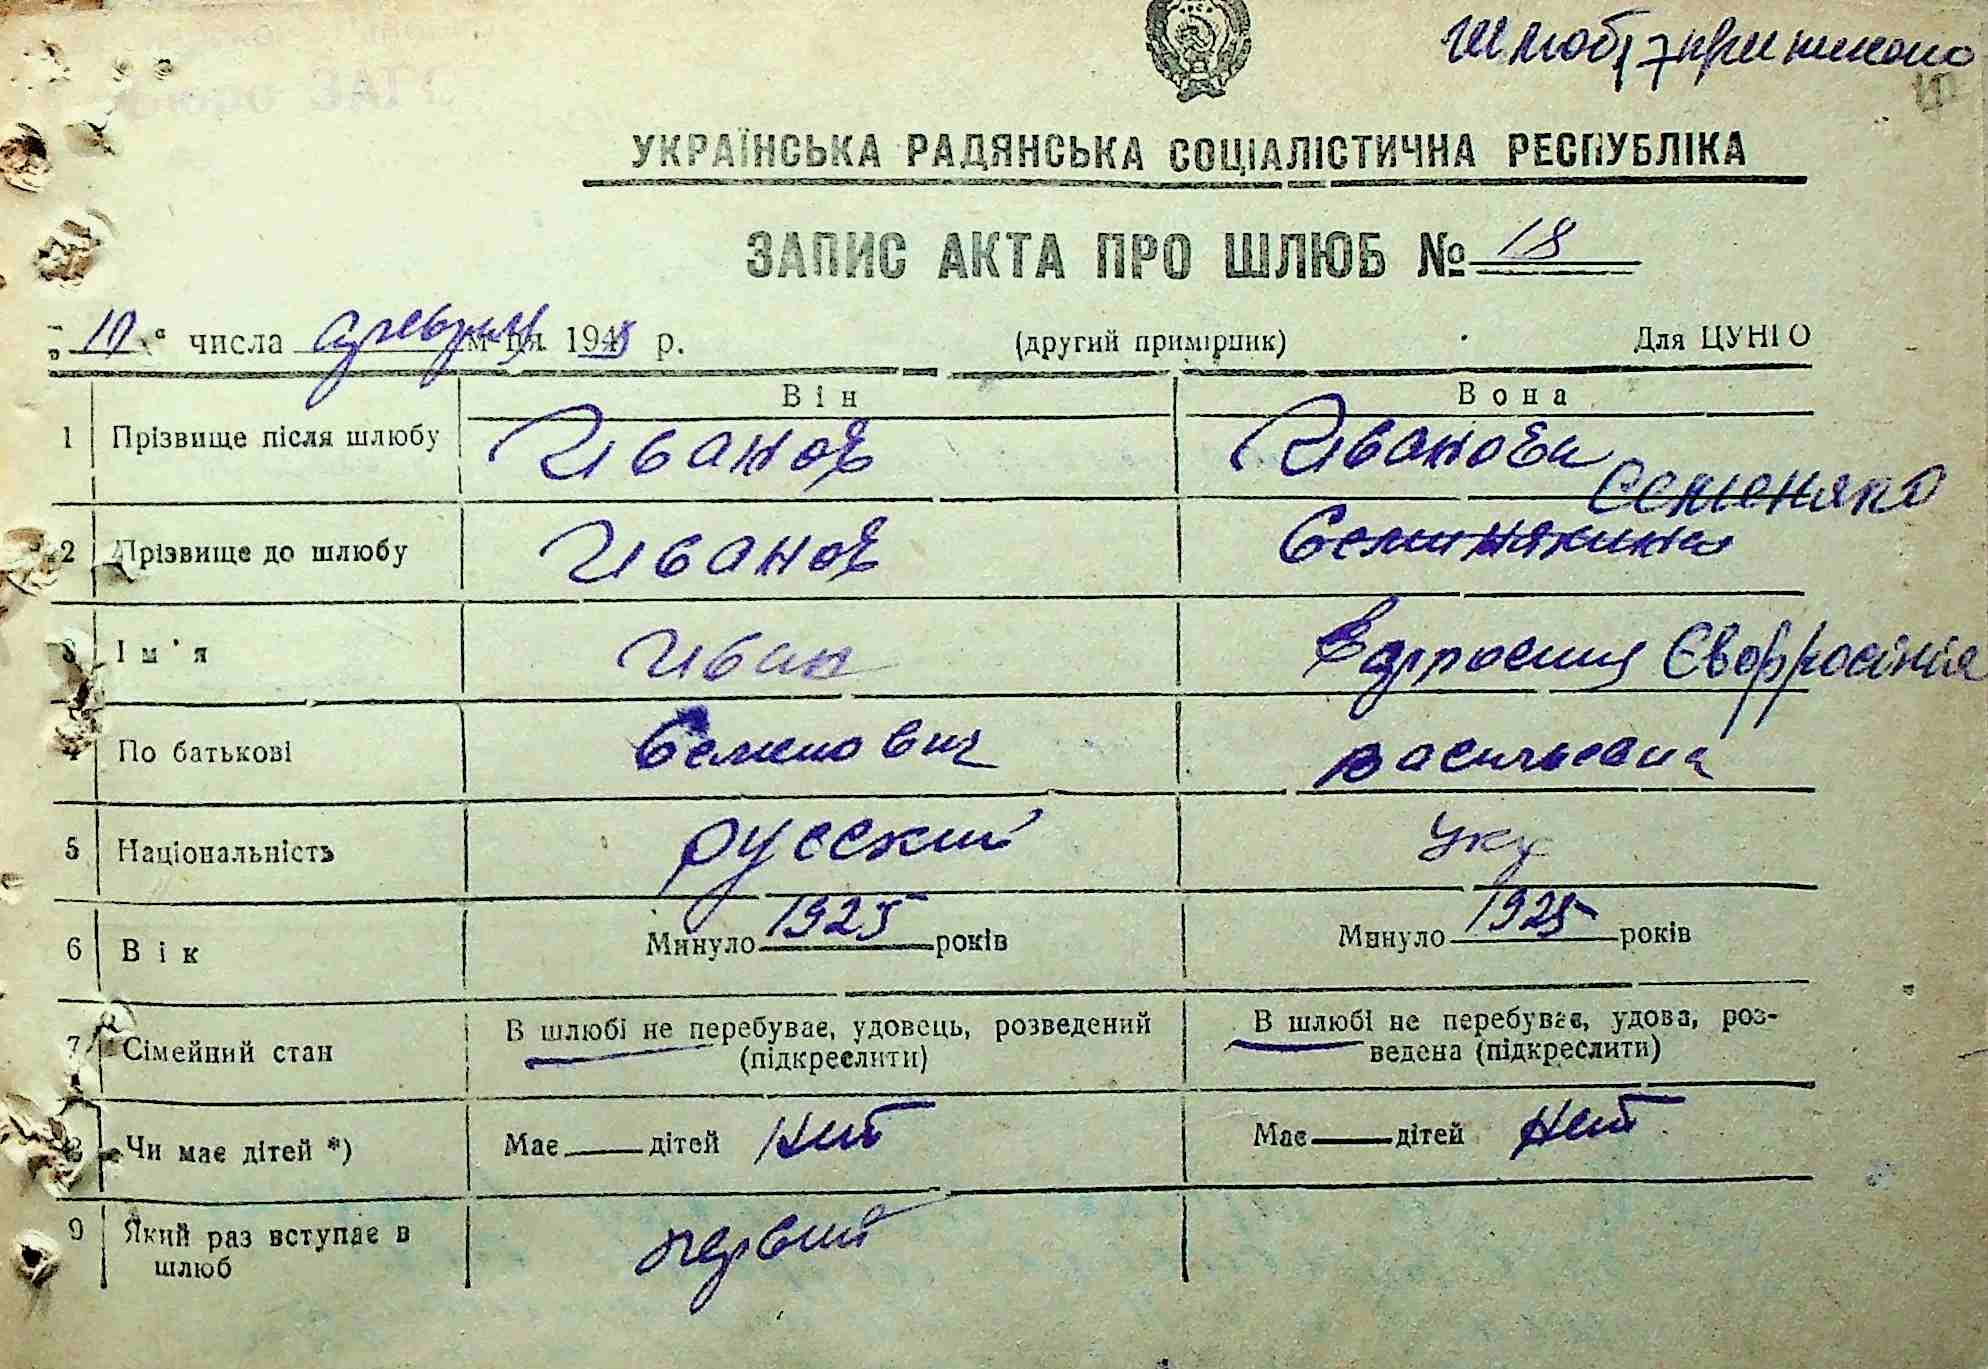 Шлюб припинено
УКРАЇНСЬКА РАДЯНСЬКА СОЦІАЛІСТИЧНА РЕСПУБЛІКА
ЗАПИС АКТА ПРО ШЛЮБ № 18
„10“ числа февраля м-ця 1948 р. (другий примірник) Для ЦУНГО
Він Вона
1 Прізвище після шлюбу Иванов Иванова
Семеняко
2 Прізвище до шлюбу Иванов Семинякина
3 Ім'я Иван Ефросиния Євфросинія
4 По батькові Семенович Васильевна
5 Національність русский укр
6 Вік Минуло 1925 років Минуло 1925 років
7 Сімейний стан В шлюбі не перебуває, удовець, розведений В шлюбі не перебуває, удова, роз-
(підкреслити) ведена (підкреслити)
8 Чи має дітей *) Має дітей нет Має дітей нет
9 Який раз вступає в первый
шлюб